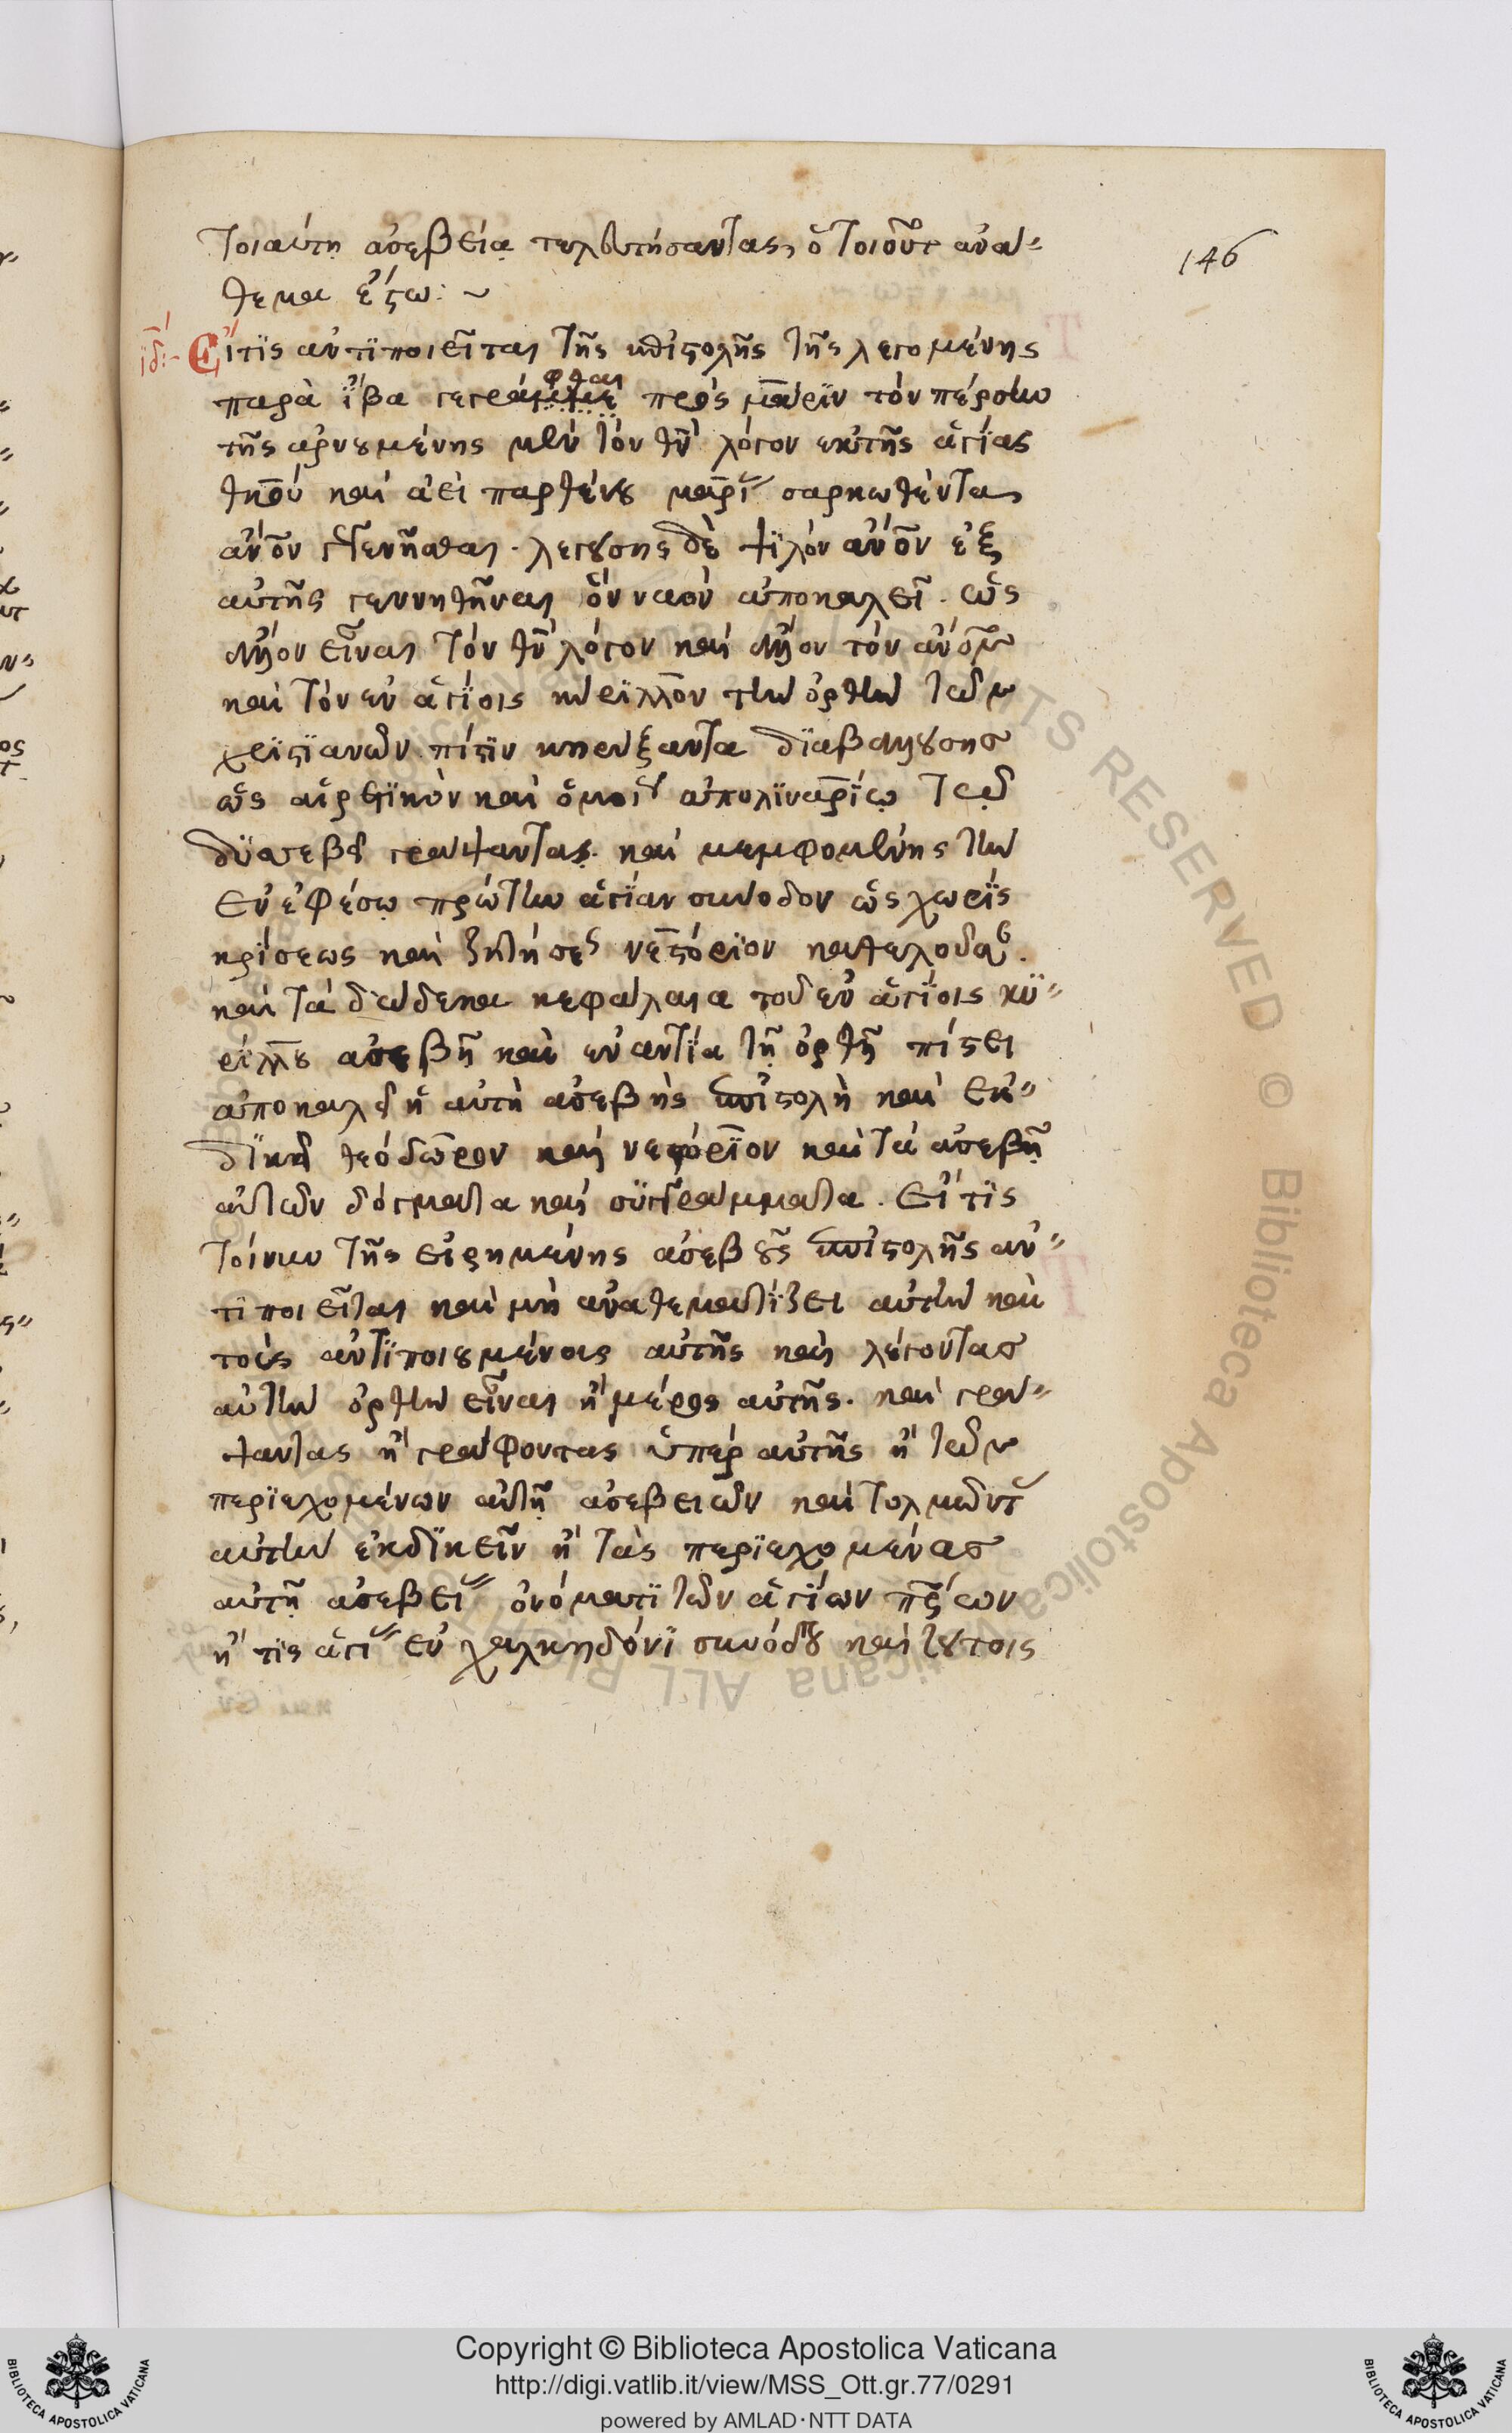 τοιαύτῃ ἀσεβείᾳ τελευτήσαντας, ὁ τοιοῦτ ἀνά-
θεμα ἔστω: ~
ιδ:- Εἴτις ἀντιποιεῖται τῆς ἐπιστολῆς τῆς λεγομένης
παρὰ ἴβα γεγράφθαι πρὸς μάριν τὸν πέρσην
τῆς ἀρνουμένης μὲν τὸν θῦ λόγον ἐκ τῆς ἁγίας
θκου καὶ ἀεὶ παρθένου μαρί σαρκωθέντα
ἄνον γεγενῆσθαι. λεγούσης δὲ ψιλὸν ἄνον ἐξ
αὐτῆς γεννηθῆναι ὃν ναὸν ἀποκαλεῖ. ὡς
ἄλλον εἶναι τὸν θῦ λόγον καὶ ἄλλον τὸν ἄνον
καὶ τὸν ἐν ἁγίοις κύριλλον τὴν ὀρθὴν τῶν
χριστιανῶν πίστιν κηρύξαντα διαβαλλούσης
ὡς αἱρετικὸν καὶ ὁμοί ἀπολιναρίῳ τῷ
δυσσεβεῖ γράψαντα. καὶ μεμφομένης τὴν
ἐν ἐφέσῳ πρώτην ἁγίαν σύνοδον ὡς χωρὶς
κρίσεως καὶ ζητήσε νεστόριον καθελοῦσα.
καὶ τὰ δώδεκα κεφάλαια τοῦ ἐν ἁγίοις κυ-
ρίλλου ἀσεβῆ καὶ ἐναντία τῇ ὀρθῇ πίστει
ἀποκαλεῖ ἡ αὐτὴ ἀσεβὴς ἐπιστολὴ καὶ ἐκ-
δικεῖ θεόδωρον καὶ νεστόριον καὶ τὰ ἀσεβῆ
αὐτῶν δόγματα καὶ συγγράμματα. Εἴ τις
τοίνυν τῆς εἰρημένης ἀσεβοῦς ἐπιστολῆς ἀν-
τιποιεῖται καὶ μὴ ἀναθεματίζει αὐτὴν καὶ
τοὺς ἀντιποιουμένους αὐτῆς καὶ λέγοντας
αὐτὴν ὀρθὴν εἶναι ἢ μέρος αὐτῆς. καὶ γρά-
ψαντας ἢ γράφοντας ὑπὲρ αὐτῆς ἢ τῶν
περιεχομένων αὐτῇ ἀσεβειῶν καὶ τολμῶντ
αὐτὴν ἐκδικεῖν ἢ τὰς περιεχομένας
αὐτῇ ἀσεβεί ὀνόματι τῶν ἁγίων πρων
ἢ τῆς ἁγί ἐν χαλκηδόνι συνόδου καὶ τούτοις
146
Copyright © Biblioteca Apostolica Vaticana
http://digi.vatlib.it/view/MSS_Ott.gr.77/0291
powered by AMLAD·NTT DATA